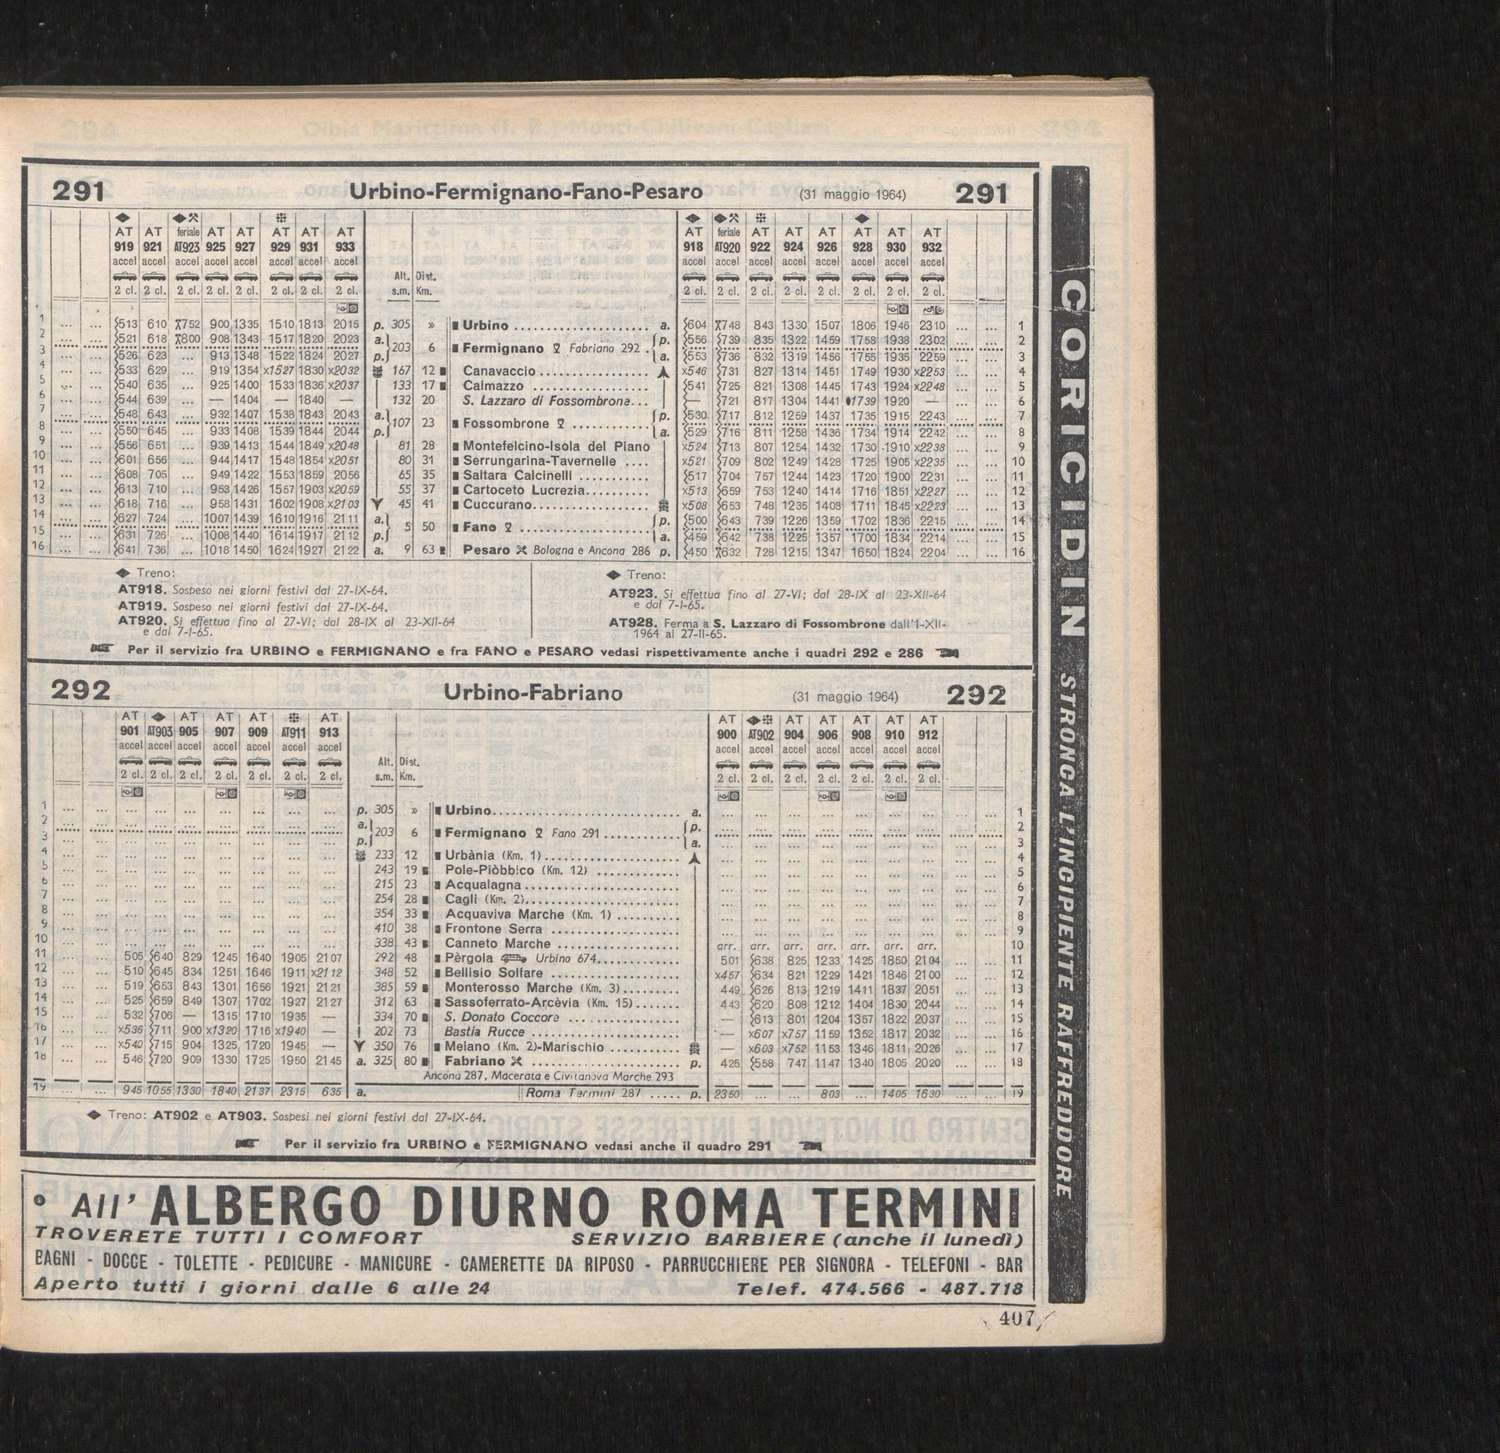 291 Urbino-Fermignano-Fano-Pesaro (31 maggio 1964) 291
AT AT feriale AT AT AT AT AT AT feriale AT AT AT AT AT AT
919 921 AT923 925 927 929 931 933 918 AT920 922 924 926 928 930 932
accel accel accel accel accel accel accel accel Alt. Dist. accel accel accel accel accel accel accel accel
2 cl. 2 cl. 2 cl. 2 cl. 2 cl. 2 cl. 2 cl. 2 cl. s.m. Km. 2 cl. 2 cl. 2 cl. 2 cl. 2 cl. 2 cl. 2 cl. 2 cl.
1 ... ... 513 610 752 900 1335 1510 1813 2015 p. 305 » Urbino .................... a. 604 748 843 1330 1507 1806 1946 2310 ... ... 1
2 ... ... 521 618 800 908 1343 1517 1820 2023 a. 203 6 Fermignano Fabriano 292 . p. 556 739 835 1322 1459 1758 1938 2302 ... ... 2
3 ... ... 526 623 ... 913 1348 1522 1824 2027 p. a. 553 736 832 1319 1456 1755 1935 2259 ... ... 3
4 ... ... 533 629 ... 919 1354 x1527 1830 x2032 167 12 Canavaccio ................ x546 731 827 1314 1451 1749 1930 x2253 ... ... 4
5 ... ... 540 635 ... 925 1400 1533 1836 x2037 133 17 Calmazzo .................. 541 725 821 1308 1445 1743 1924 x2248 ... ... 5
6 ... ... 544 639 ... — 1404 — 1840 — 132 20 S. Lazzaro di Fossombrone... — 721 817 1304 1441 1739 1920 — ... ... 6
7 ... ... 548 643 ... 932 1407 1538 1843 2043 a. 107 23 Fossombrone ............ p. 530 717 812 1259 1437 1735 1915 2243 ... ... 7
8 ... ... 550 645 ... 933 1408 1539 1844 2044 p. a. 529 716 811 1258 1436 1734 1914 2242 ... ... 8
9 ... ... 556 651 ... 939 1413 1544 1849 x2048 81 28 Montefelcino-Isola del Piano x524 713 807 1254 1432 1730 1910 x2238 ... ... 9
10 ... ... 601 656 ... 944 1417 1548 1854 x2051 80 31 Serrungarina-Tavernelle .... x521 709 802 1249 1428 1725 1905 x2235 ... ... 10
11 ... ... 608 705 ... 949 1422 1553 1859 2056 65 35 Saltara Calcinelli ........... 517 704 757 1244 1423 1720 1900 2231 ... ... 11
12 ... ... 613 710 ... 953 1426 1557 1903 x2059 55 37 Cartoceto Lucrezia.......... x513 659 753 1240 1414 1716 1851 x2227 ... ... 12
13 ... ... 618 716 ... 958 1431 1602 1908 x2103 45 41 Cuccurano.................. x508 653 748 1235 1408 1711 1845 x2223 ... ... 13
14 ... ... 627 724 ... 1007 1439 1610 1916 2111 a. 5 50 Fano .................... p. 500 643 739 1226 1359 1702 1836 2215 ... ... 14
15 ... ... 631 726 ... 1008 1440 1614 1917 2112 p. a. 459 642 738 1225 1357 1700 1834 2214 ... ... 15
16 ... ... 641 736 ... 1018 1450 1624 1927 2122 a. 9 63 Pesaro Bologna e Ancona 286 p. 450 632 728 1215 1347 1650 1824 2204 ... ... 16
Treno:
AT918. Sospeso nei giorni festivi dal 27-IX-64.
AT919. Sospeso nei giorni festivi dal 27-IX-64.
AT920. Si effettua fino al 27-VI; dal 28-IX al 23-XII-64
e dal 7-I-65.
Treno:
AT923. Si effettua fino al 27-VI; dal 28-IX al 23-XII-64
e dal 7-I-65.
AT928. Ferma a S. Lazzaro di Fossombrone dall'1-XII-
1964 al 27-II-65.
Per il servizio fra URBINO e FERMIGNANO e fra FANO e PESARO vedasi rispettivamente anche i quadri 292 e 286
292 Urbino-Fabriano (31 maggio 1964) 292
AT AT AT AT AT AT AT AT AT AT AT
901 AT903 905 907 909 AT911 913 900 AT902 904 906 908 910 912
accel accel accel accel accel accel accel Alt. Dist. accel accel accel accel accel accel accel
2 cl. 2 cl. 2 cl. 2 cl. 2 cl. 2 cl. 2 cl. s.m. Km. 2 cl. 2 cl. 2 cl. 2 cl. 2 cl. 2 cl. 2 cl.
1 ... ... ... ... ... ... ... ... ... p. 305 » Urbino............................ a. ... ... ... ... ... ... ... ... ... 1
2 ... ... ... ... ... ... ... ... ... a. 203 6 Fermignano Fano 291 ........... p. ... ... ... ... ... ... ... ... ... 2
3 ... ... ... ... ... ... ... ... ... p. a. ... ... ... ... ... ... ... ... ... 3
4 ... ... ... ... ... ... ... ... ... 233 12 Urbània (Km. 1).................... ... ... ... ... ... ... ... ... ... 4
5 ... ... ... ... ... ... ... ... ... 243 19 Pole-Piòbbico (Km. 12) ............ ... ... ... ... ... ... ... ... ... 5
6 ... ... ... ... ... ... ... ... ... 215 23 Acqualagna....................... ... ... ... ... ... ... ... ... ... 6
7 ... ... ... ... ... ... ... ... ... 254 28 Cagli (Km. 2)....................... ... ... ... ... ... ... ... ... ... 7
8 ... ... ... ... ... ... ... ... ... 354 33 Acquaviva Marche (Km. 1) .......... ... ... ... ... ... ... ... ... ... 8
9 ... ... ... ... ... ... ... ... ... 410 38 Frontone Serra .................... ... ... ... ... ... ... ... ... ... 9
10 ... ... ... ... ... ... ... ... ... 338 43 Canneto Marche .................. arr. arr. arr. arr. arr. arr. arr. ... ... 10
11 ... ... 505 640 829 1245 1640 1905 2107 292 48 Pèrgola Urbino 674............ 501 638 825 1233 1425 1850 2104 ... ... 11
12 ... ... 510 645 834 1251 1646 1911 x2112 348 52 Bellisio Solfare .................... x457 634 821 1229 1421 1846 2100 ... ... 12
13 ... ... 519 653 843 1301 1656 1921 2121 385 59 Monterosso Marche (Km. 3) ......... 449 626 813 1219 1411 1837 2051 ... ... 13
14 ... ... 525 659 849 1307 1702 1927 2127 312 63 Sassoferrato-Arcèvia (Km. 15)....... 443 620 808 1212 1404 1830 2044 ... ... 14
15 ... ... 532 706 — 1315 1710 1935 — 334 70 S. Donato Coccore ................ — 613 801 1204 1357 1822 2037 ... ... 15
16 ... ... x536 711 900 x1320 1716 x1940 — 202 73 Bastia Rucce ..................... — x607 x757 1159 1352 1817 2032 ... ... 16
17 ... ... x540 715 904 1325 1720 1945 — 350 76 Melano (Km. 2)-Marischio .......... — x603 x752 1153 1346 1811 2026 ... ... 17
18 ... ... 546 720 909 1330 1725 1950 2145 a. 325 80 Fabriano ........................ p. 425 558 747 1147 1340 1805 2020 ... ... 18
Ancona 287, Macerata e Civitanova Marche 293
19 945 1055 1330 1840 2137 2315 635 a. Roma Termini 287 ..... p. 2350 ... ... 803 ... 1405 1630 ... ... 19
Treno: AT902 e AT903. Sospesi nei giorni festivi dal 27-IX-64.
Per il servizio fra URBINO e FERMIGNANO vedasi anche il quadro 291
All' ALBERGO DIURNO ROMA TERMINI
TROVERETE TUTTI I COMFORT SERVIZIO BARBIERE (anche il lunedì)
BAGNI - DOCCE - TOLETTE - PEDICURE - MANICURE - CAMERETTE DA RIPOSO - PARRUCCHIERE PER SIGNORA - TELEFONI - BAR
Aperto tutti i giorni dalle 6 alle 24 Telef. 474.566 - 487.718
CORICIDIN STRONCA L'INCIPIENTE RAFFREDDORE
407